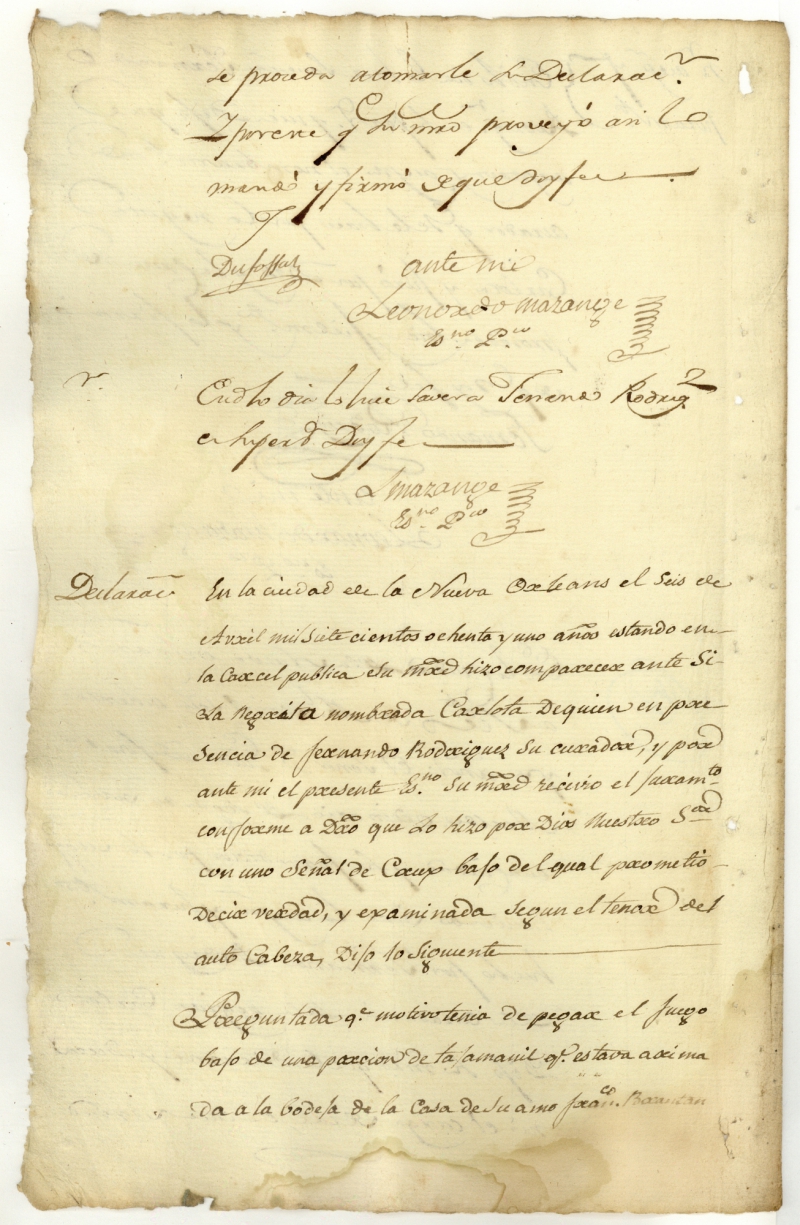 se proceda a tomarle su Declarac.n
Y por este q. su mrd proveyó asi lo
mandó y firmó de que Doy fee
Dufossat
ante mi
Leonardo Mazange
Es.no P.co
En dho dia lo hice saver a Fernando Rodrig.z
Doy fe
L Mazange
Es.no P.co
Declarac.n
En la ciudad de la Nueva Orleans el Seis de
Avril mil Siete cientos ochenta y uno años estando en
la Carcel publica su mrd hizo comparecer ante Si
a la Negrita nombrada Carlota De quien en pre
sencia de fernando Rodriguez su curador, y por
ante mi el presente Es.no su mrd recivio el juram.to
conforme a Dro que lo hizo por Dios Nuestro S.or
con uno Señal de Crux bajo del qual prometio
Decir verdad, y examinada segun el tenor del
auto Cabeza, Dijo lo Siguiente
Preguntada q.e motivo tenia de pegar el fuego
bajo de una porcion de q.e estava arima
da a la bodeja de la Casa de su amo fran.co